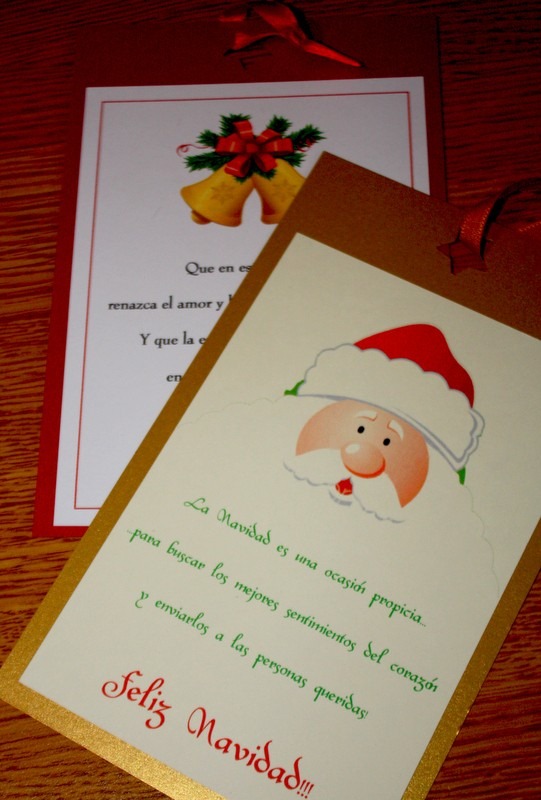 Que en es
renazca el amor y
Y que la e
en
La Navidad es una ocasión propicia...
...para buscar los mejores sentimientos del corazón
y enviarlos a las personas queridas!
Feliz Navidad!!!